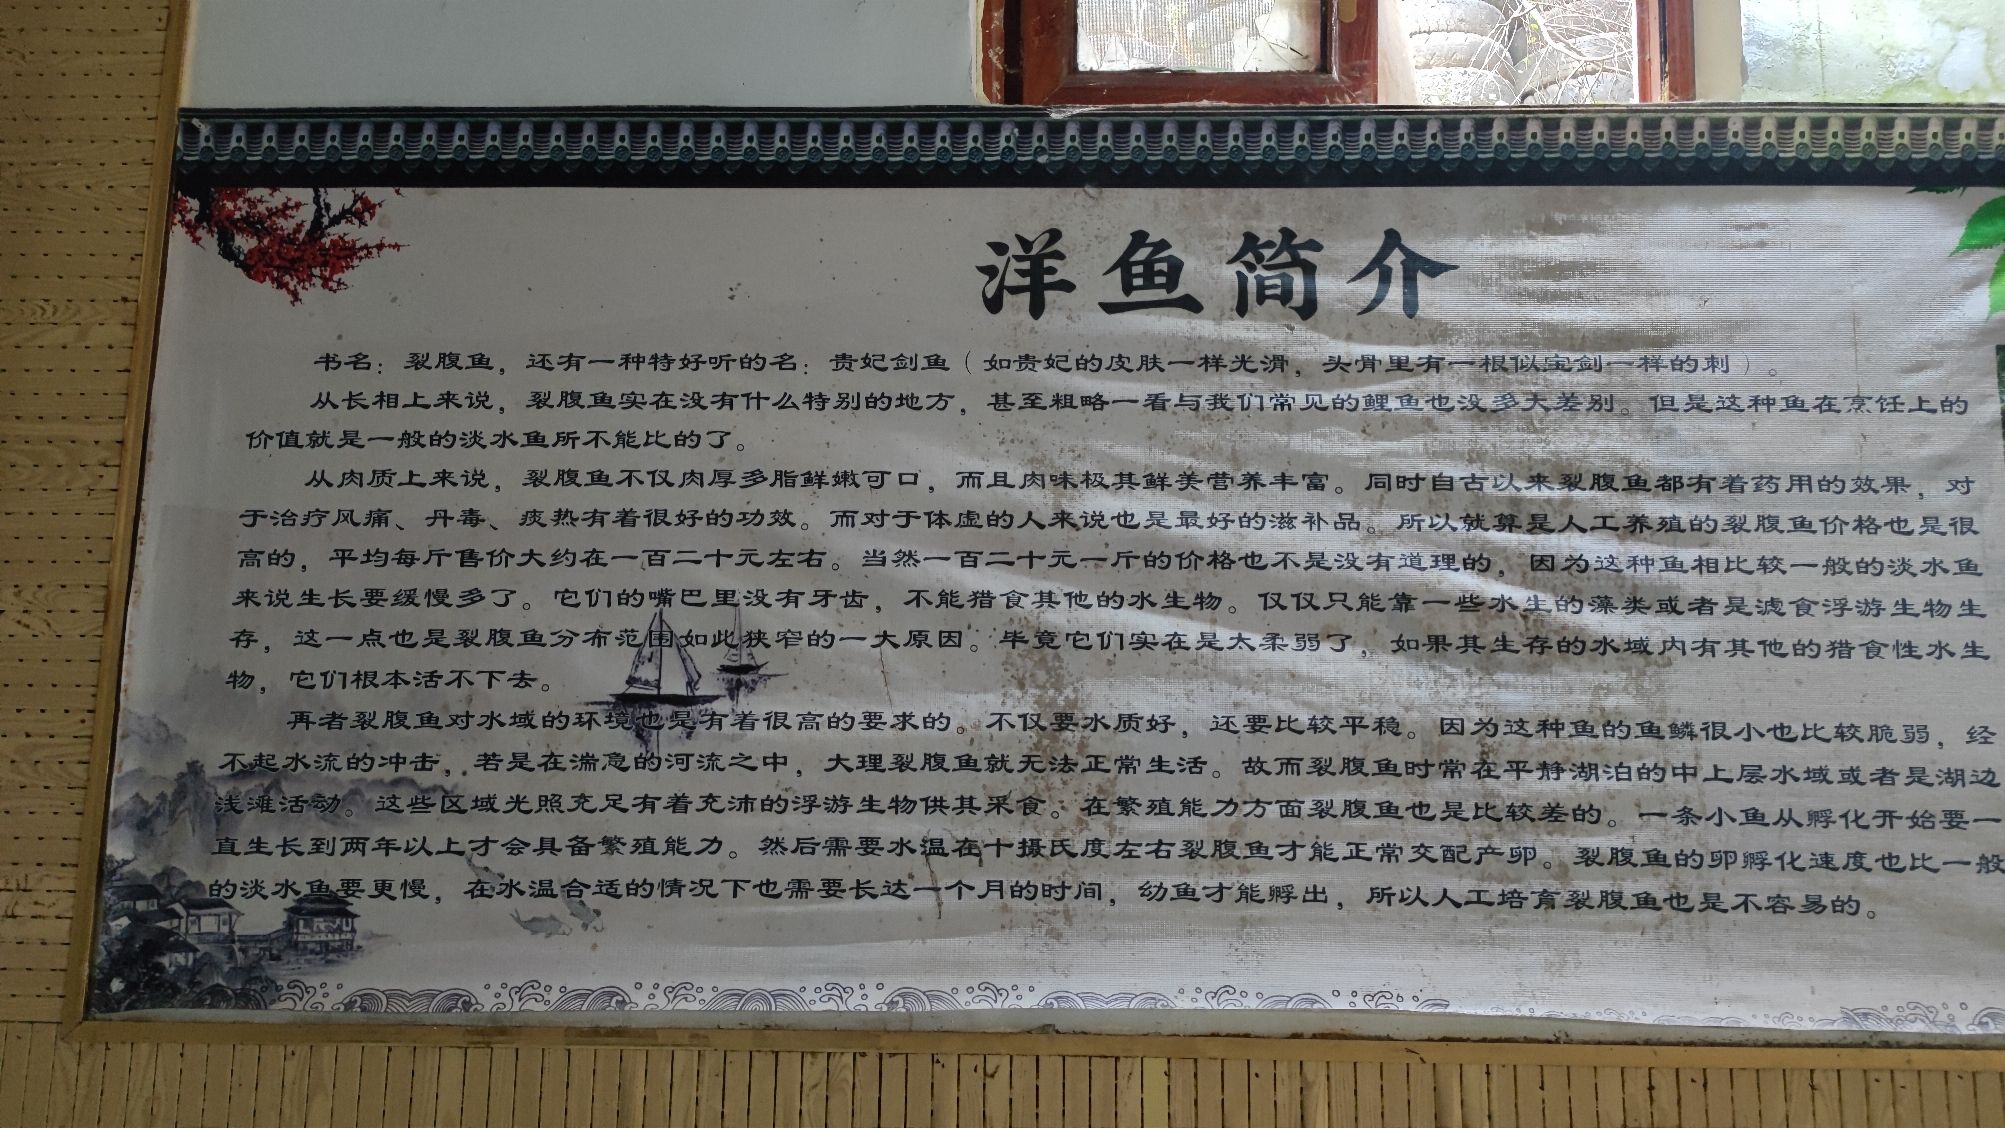 洋鱼简介
书名：裂腹鱼，还有一种特好听的名：贵妃剑鱼（如贵妃的皮肤一样光滑，头骨里有一根似宝剑一样的刺）。
从长相上来说，裂腹鱼实在没有什么特别的地方，甚至粗略一看与我们常见的鲤鱼也没多大差别。但是这种鱼在烹饪上的
价值就是一般的淡水鱼所不能比的了。
从肉质上来说，裂腹鱼不仅肉厚多脂鲜嫩可口，而且肉味极其鲜美营养丰富。同时自古以来裂腹鱼都有着药用的效果，对
于治疗风痛、丹毒、痰热有着很好的功效。而对于体虚的人来说也是最好的滋补品。所以就算是人工养殖的裂腹鱼价格也是很
高的，平均每斤售价大约在一百二十元左右。当然一百二十元一斤的价格也不是没有道理的，因为这种鱼相比较一般的淡水鱼
来说生长要缓慢多了。它们的嘴巴里没有牙齿，不能猎食其他的水生物。仅仅只能靠一些水生的藻类或者是滤食浮游生物生
存，这一点也是裂腹鱼分布范围如此狭窄的一大原因。毕竟它们实在是太柔弱了，如果其生存的水域内有其他的猎食性水生
物，它们根本活不下去。
再者裂腹鱼对水域的环境也是有着很高的要求的。不仅要水质好，还要比较平稳。因为这种鱼的鱼鳞很小也比较脆弱，经
不起水流的冲击，若是在湍急的河流之中，大理裂腹鱼就无法正常生活。故而裂腹鱼时常在平静湖泊的中上层水域或者是湖边
浅滩活动。这些区域光照充足有着充沛的浮游生物供其采食。在繁殖能力方面裂腹鱼也是比较差的。一条小鱼从孵化开始要一
直生长到两年以上才会具备繁殖能力。然后需要水温在十摄氏度左右裂腹鱼才能正常交配产卵。裂腹鱼的卵孵化速度也比一般
的淡水鱼要更慢，在水温合适的情况下也需要长达一个月的时间，幼鱼才能孵出，所以人工培育裂腹鱼也是不容易的。